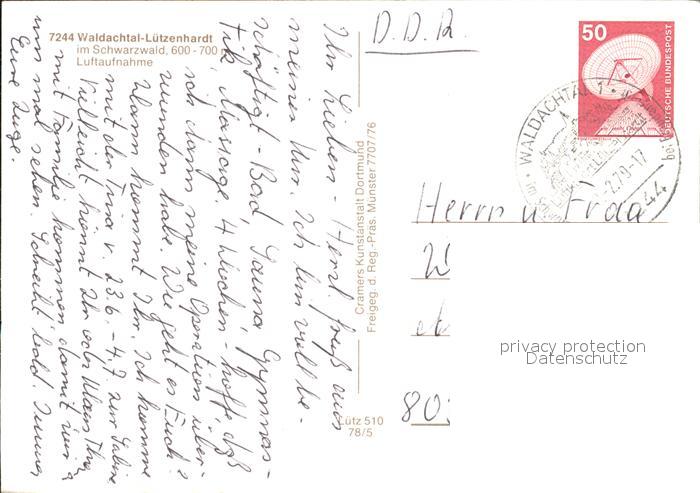 7244 Waldachtal-Lützenhardt
im Schwarzwald, 600-700 m
Luftaufnahme
Ihr Lieben - Herzl. Gruß aus
meiner Kur. Ich bin voll be-
schäftigt - Bad, Sauna, Gymnas-
tik, Massage. 4 Wochen - hoffe daß
ich dann meine Operation über-
wunden habe. Wie geht es Euch?
Wann kommt Ihr. Ich komme
mit der Tina v. 23.6. - 4.7. zur Sabine
Vielleicht könnt Ihr oder Klaus
mit Familie kommen damit wir
uns mal sehen. Schreibt bald. Immer
Eure Inge.
Cramers Kunstanstalt Dortmund
Freigeg. d. Reg.-Präs. Münster 7707/76
Lütz 510
78/5
D.D.R.
50
DEUTSCHE BUNDESPOST
WALDACHTAL 1
.2.79-17
Herrn u Frau
W
80
privacy protection
Datenschutz